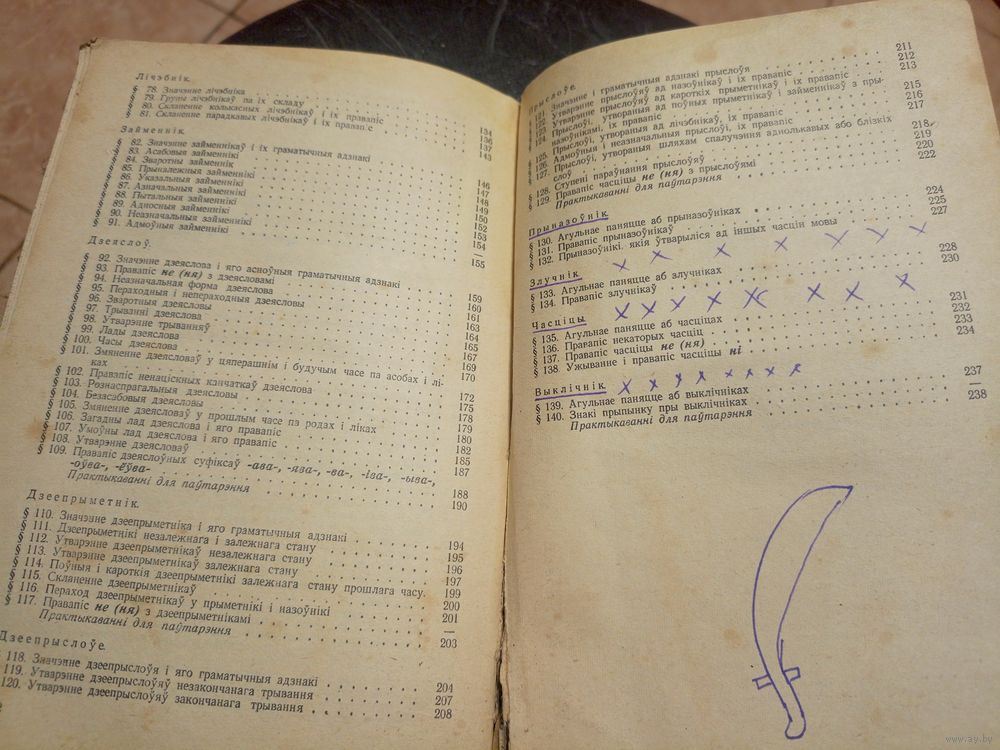 Лічэбнік
§ 78. Значэнне лічэбніка 134
§ 79. Групы лічэбнікаў па іх складу 136
§ 80. Скланенне колькасных лічэбнікаў і іх правапіс 137
§ 81. Скланенне парадкавых лічэбнікаў і іх правапіс 143
Займеннік
§ 82. Значэнне займеннікаў і іх граматычныя адзнакі 146
§ 83. Асабовыя займеннікі 147
§ 84. Зваротны займеннік 148
§ 85. Прыналежныя займеннікі 149
§ 86. Указальныя займеннікі 150
§ 87. Азначальныя займеннікі 152
§ 88. Пытальныя займеннікі 153
§ 89. Адносныя займеннікі 154
§ 90. Неазначальныя займеннікі —
§ 91. Адмоўныя займеннікі 155
Дзеяслоў
§ 92. Значэнне дзеяслова і яго асноўныя граматычныя адзнакі 159
§ 93. Правапіс не (ня) з дзеясловамі 160
§ 94. Неазначальная форма дзеяслова 161
§ 95. Пераходныя і непераходныя дзеясловы 163
§ 96. Зваротныя дзеясловы 164
§ 97. Трыванні дзеяслова 165
§ 98. Утварэнне трыванняў 167
§ 99. Лады дзеяслова 169
§ 100. Часы дзеяслова 170
§ 101. Змяненне дзеясловаў у цяперашнім і будучым часе па асобах і лі-
ках 172
§ 102. Правапіс ненаціскных канчаткаў дзеяслова 175
§ 103. Рознаспрагальныя дзеясловы 178
§ 104. Безасабовыя дзеясловы 179
§ 105. Змяненне дзеясловаў у прошлым часе па родах і ліках 180
§ 106. Загадны лад дзеяслова і яго правапіс 182
§ 107. Умоўны лад дзеяслова і яго правапіс 185
§ 108. Утварэнне дзеясловаў 187
§ 109. Правапіс дзеяслоўных суфіксаў -ава-, -ява-, -ва-, -іва-, -ыва-,
-оўва-, -ёўва- 188
Практыкаванні для паўтарэння 190
Дзеепрыметнік
§ 110. Значэнне дзеепрыметніка і яго граматычныя адзнакі 194
§ 111. Дзеепрыметнікі незалежнага і залежнага стану 195
§ 112. Утварэнне дзеепрыметнікаў незалежнага стану 196
§ 113. Утварэнне дзеепрыметнікаў залежнага стану 197
§ 114. Поўныя і кароткія дзеепрыметнікі залежнага стану прошлага часу. 199
§ 115. Скланенне дзеепрыметнікаў 200
§ 116. Пераход дзеепрыметнікаў у прыметнікі і назоўнікі 201
§ 117. Правапіс не (ня) з дзеепрыметнікамі —
Практыкаванні для паўтарэння 203
Дзеепрыслоўе
118. Значэнне дзеепрыслоўя і яго граматычныя адзнакі 204
119. Утварэнне дзеепрыслоўяў незакончанага трывання 207
120. Утварэнне дзеепрыслоўяў закончанага трывання 208
Прыслоўе
§ 121. Значэнне і граматычныя адзнакі прыслоўя 211
§ 122. Утварэнне прыслоўяў ад назоўнікаў і іх правапіс 212
§ 123. Утварэнне прыслоўяў ад кароткіх прыметнікаў і іх правапіс 213
§ 124. Прыслоўі, утвораныя ад поўных прыметнікаў і займеннікаў з пры-
назоўнікамі, іх правапіс 215
§ 125. Прыслоўі, утвораныя ад лічэбнікаў, іх правапіс 216
§ 126. Адмоўныя і неазначальныя прыслоўі, іх правапіс 217
§ 127. Прыслоўі, утвораныя шляхам спалучэння аднолькавых або блізкіх
слоў 218
§ 128. Ступені параўнання прыслоўяў 219
§ 129. Правапіс часціцы не (ня) з прыслоўямі 220
Практыкаванні для паўтарэння 222
Прыназоўнік
§ 130. Агульнае паняцце аб прыназоўніках 224
§ 131. Правапіс прыназоўнікаў 225
§ 132. Прыназоўнікі, якія ўтварыліся ад іншых часцін мовы 227
Злучнік
§ 133. Агульнае паняцце аб злучніках 228
§ 134. Правапіс злучнікаў 230
Часціцы
§ 135. Агульнае паняцце аб часціцах 231
§ 136. Правапіс некаторых часціц 232
§ 137. Правапіс часціцы не (ня) 233
§ 138. Ужыванне і правапіс часціцы ні 234
Выклічнік
§ 139. Агульнае паняцце аб выклічніках 237
§ 140. Знакі прыпынку пры выклічніках —
Практыкаванні для паўтарэння 238
www.ay.by